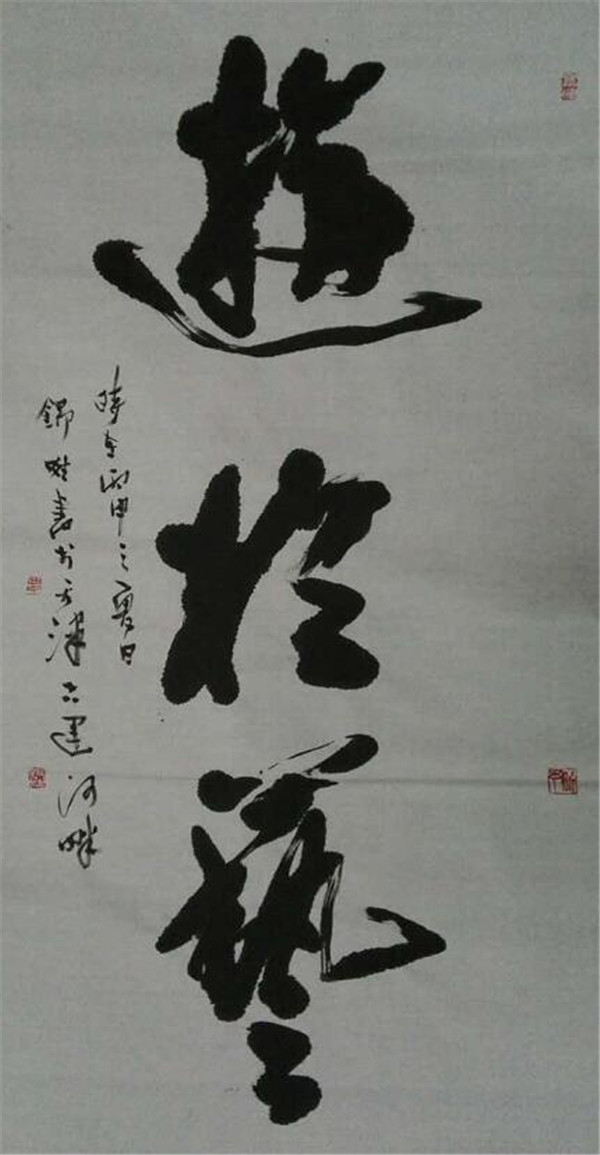 遊於藝
時在丙申之夏日
錦 書於天津古運河畔